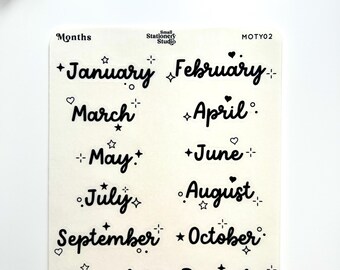 Months Small Stationery Studio MOTY02
January February
March April
May June
July August
September October